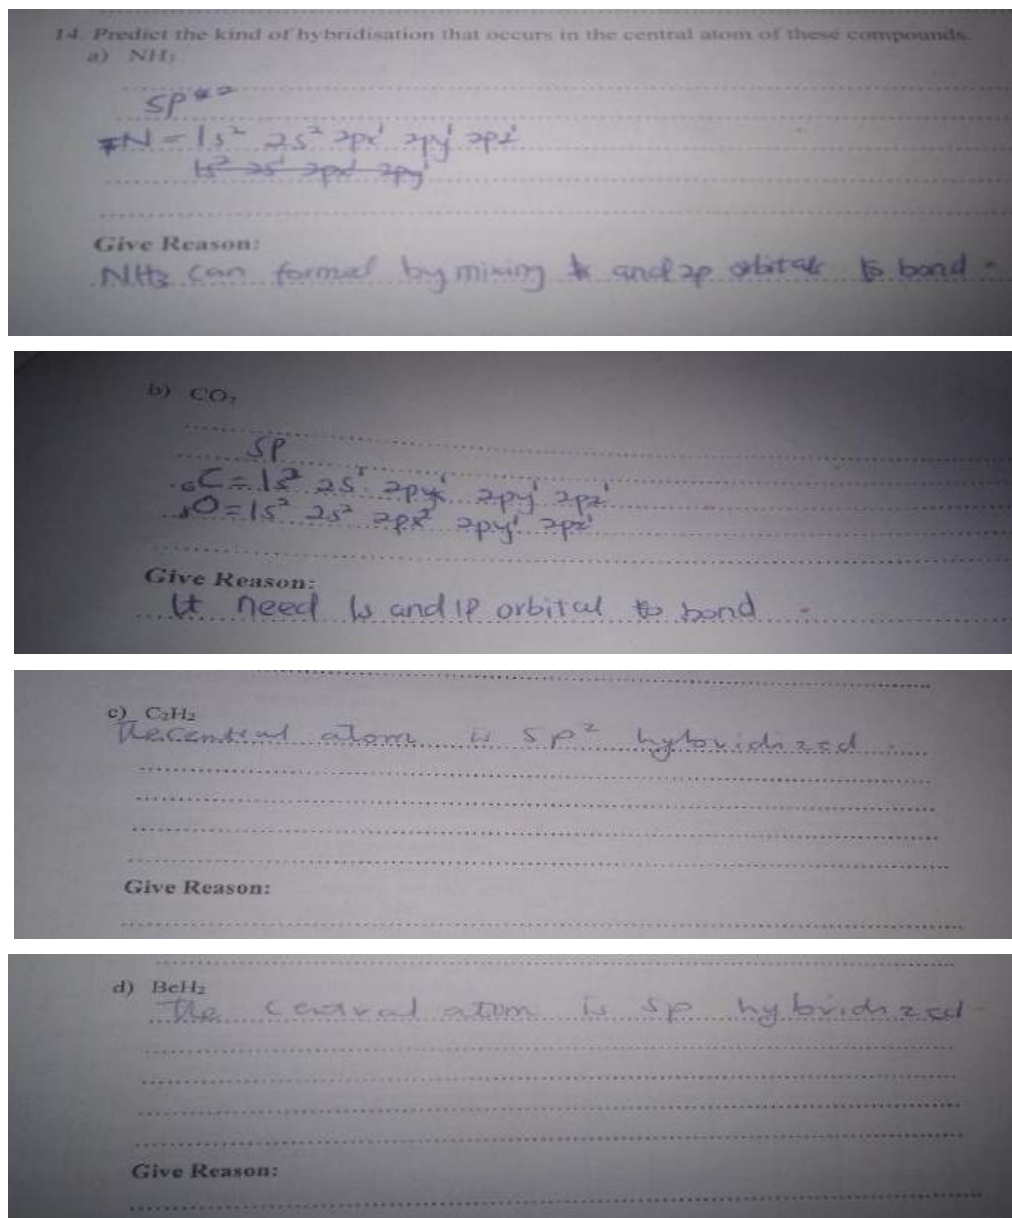 14. Predict the kind of hybridisation that occurs in the central atom of these compounds.
a) NH₃
sp²
₇N = 1s² 2s² 2px¹ 2py¹ 2pz¹
1s² 2s¹ 2px¹ 2py¹
Give Reason:
NH₃ can formed by mixing and 2p orbitals to bond
b) CO₂
SP
₆C = 1s² 2s¹ 2px¹ 2py¹ 2pz¹
₈O = 1s² 2s² 2px² 2py¹ 2pz¹
Give Reason:
It need 1s and 1P orbital to bond
c) C₂H₂
The central atom is sp² hybridized
Give Reason:
d) BeH₂
The central atom is sp hybridized
Give Reason: